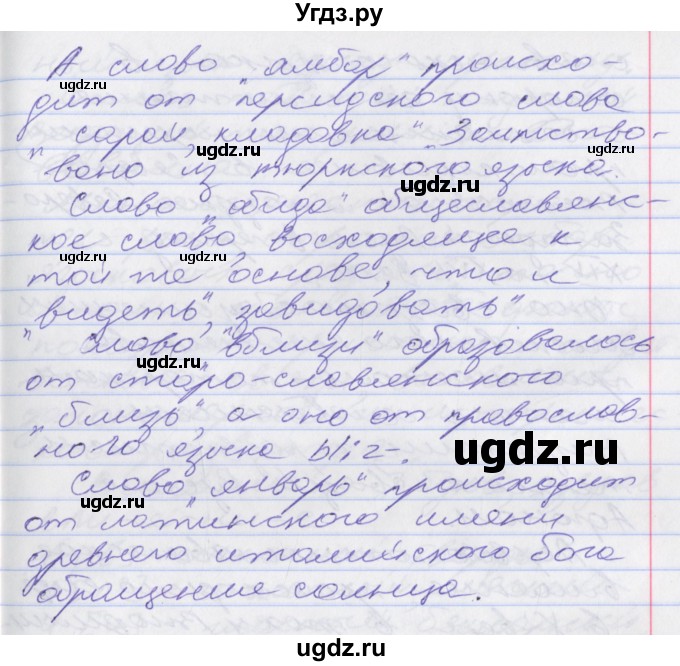 Угдз.ру
А слово „амбар“ происхо-
дит от персидского слова
„сарай, кладовка“. Заимство-
вано из тюркского языка.
Слово „обида“ общеславянс-
кое слово, восходящее к
той же основе, что и
„видеть“, „завидовать“
Слово „вблизи“ образовалось
от старо-славянского
„близь“, а оно от православ-
ного языка bliz-.
Слово „январь“ происходит
от латинского имени
древнего италийского бога
обращение солнца.
ugdz.ru
ugdz.ru
ugdz.ru
ugdz.ru
ugdz.ru
ugdz.ru
ugdz.ru
ugdz.ru
ugdz.ru
ugdz.ru
ugdz.ru
ugdz.ru
ugdz.ru
ugdz.ru